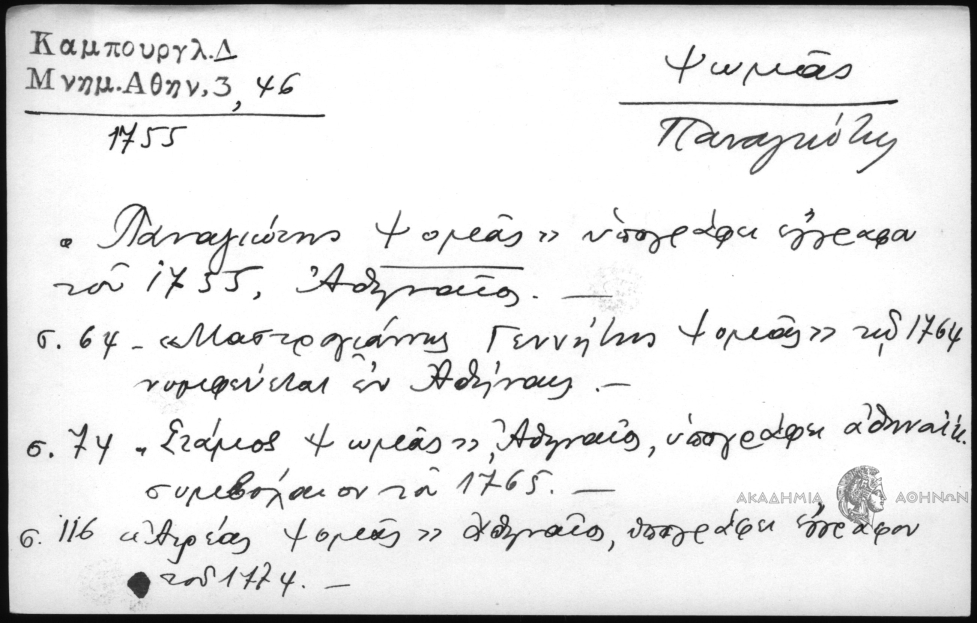 Καμπουργλ.Δ
Μνημ.Αθην,3, 46
1755
Ψωμᾶς
Παναγιώτης
« Παναγιώτης Ψομᾶς » ὑπογράφει ἔγγραφον
τοῦ 1755, Ἀθηναῖος. —
σ. 64 - «Μαστρογιάννης Γεννήτης Ψομᾶς» τῷ 1764
νυμφεύεται ἐν Ἀθήναις. —
σ. 74 - Στάμος Ψωμᾶς », Ἀθηναῖος, ὑπογράφει ἀθηναϊκ.
συμβόλαιον τοῦ 1765. —
σ. 116 « Ψομᾶς » Ἀθηναῖος, ὑπογράφει ἔγγραφον
τοῦ 1774. —
ΑΚΑΔΗΜΙΑ ΑΘΗΝΩΝ